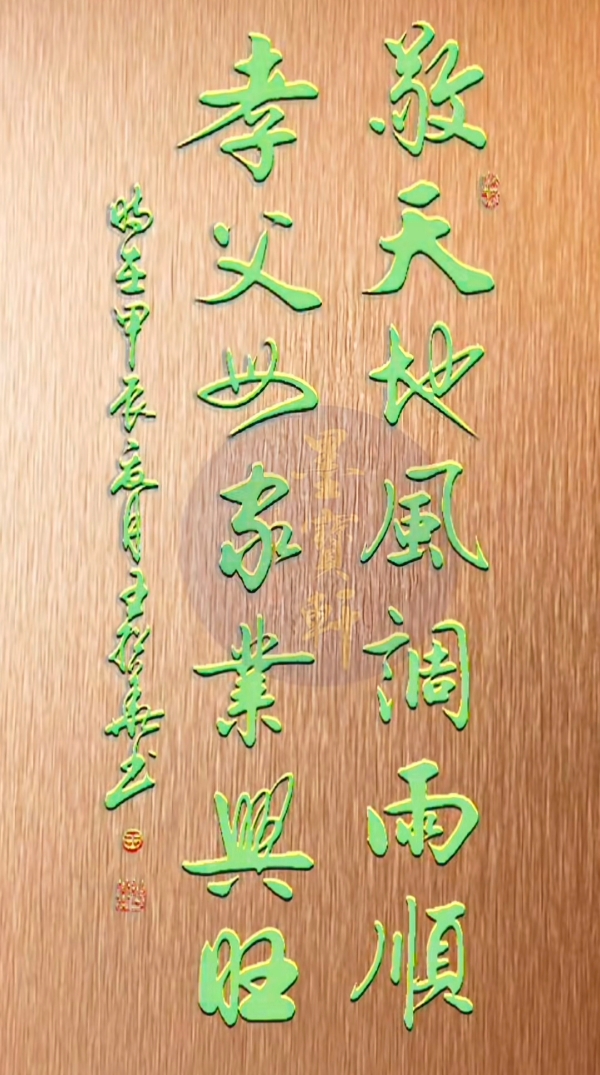 敬天地風調雨順
孝父母家業興旺
時在甲辰
月王
墨寶軒